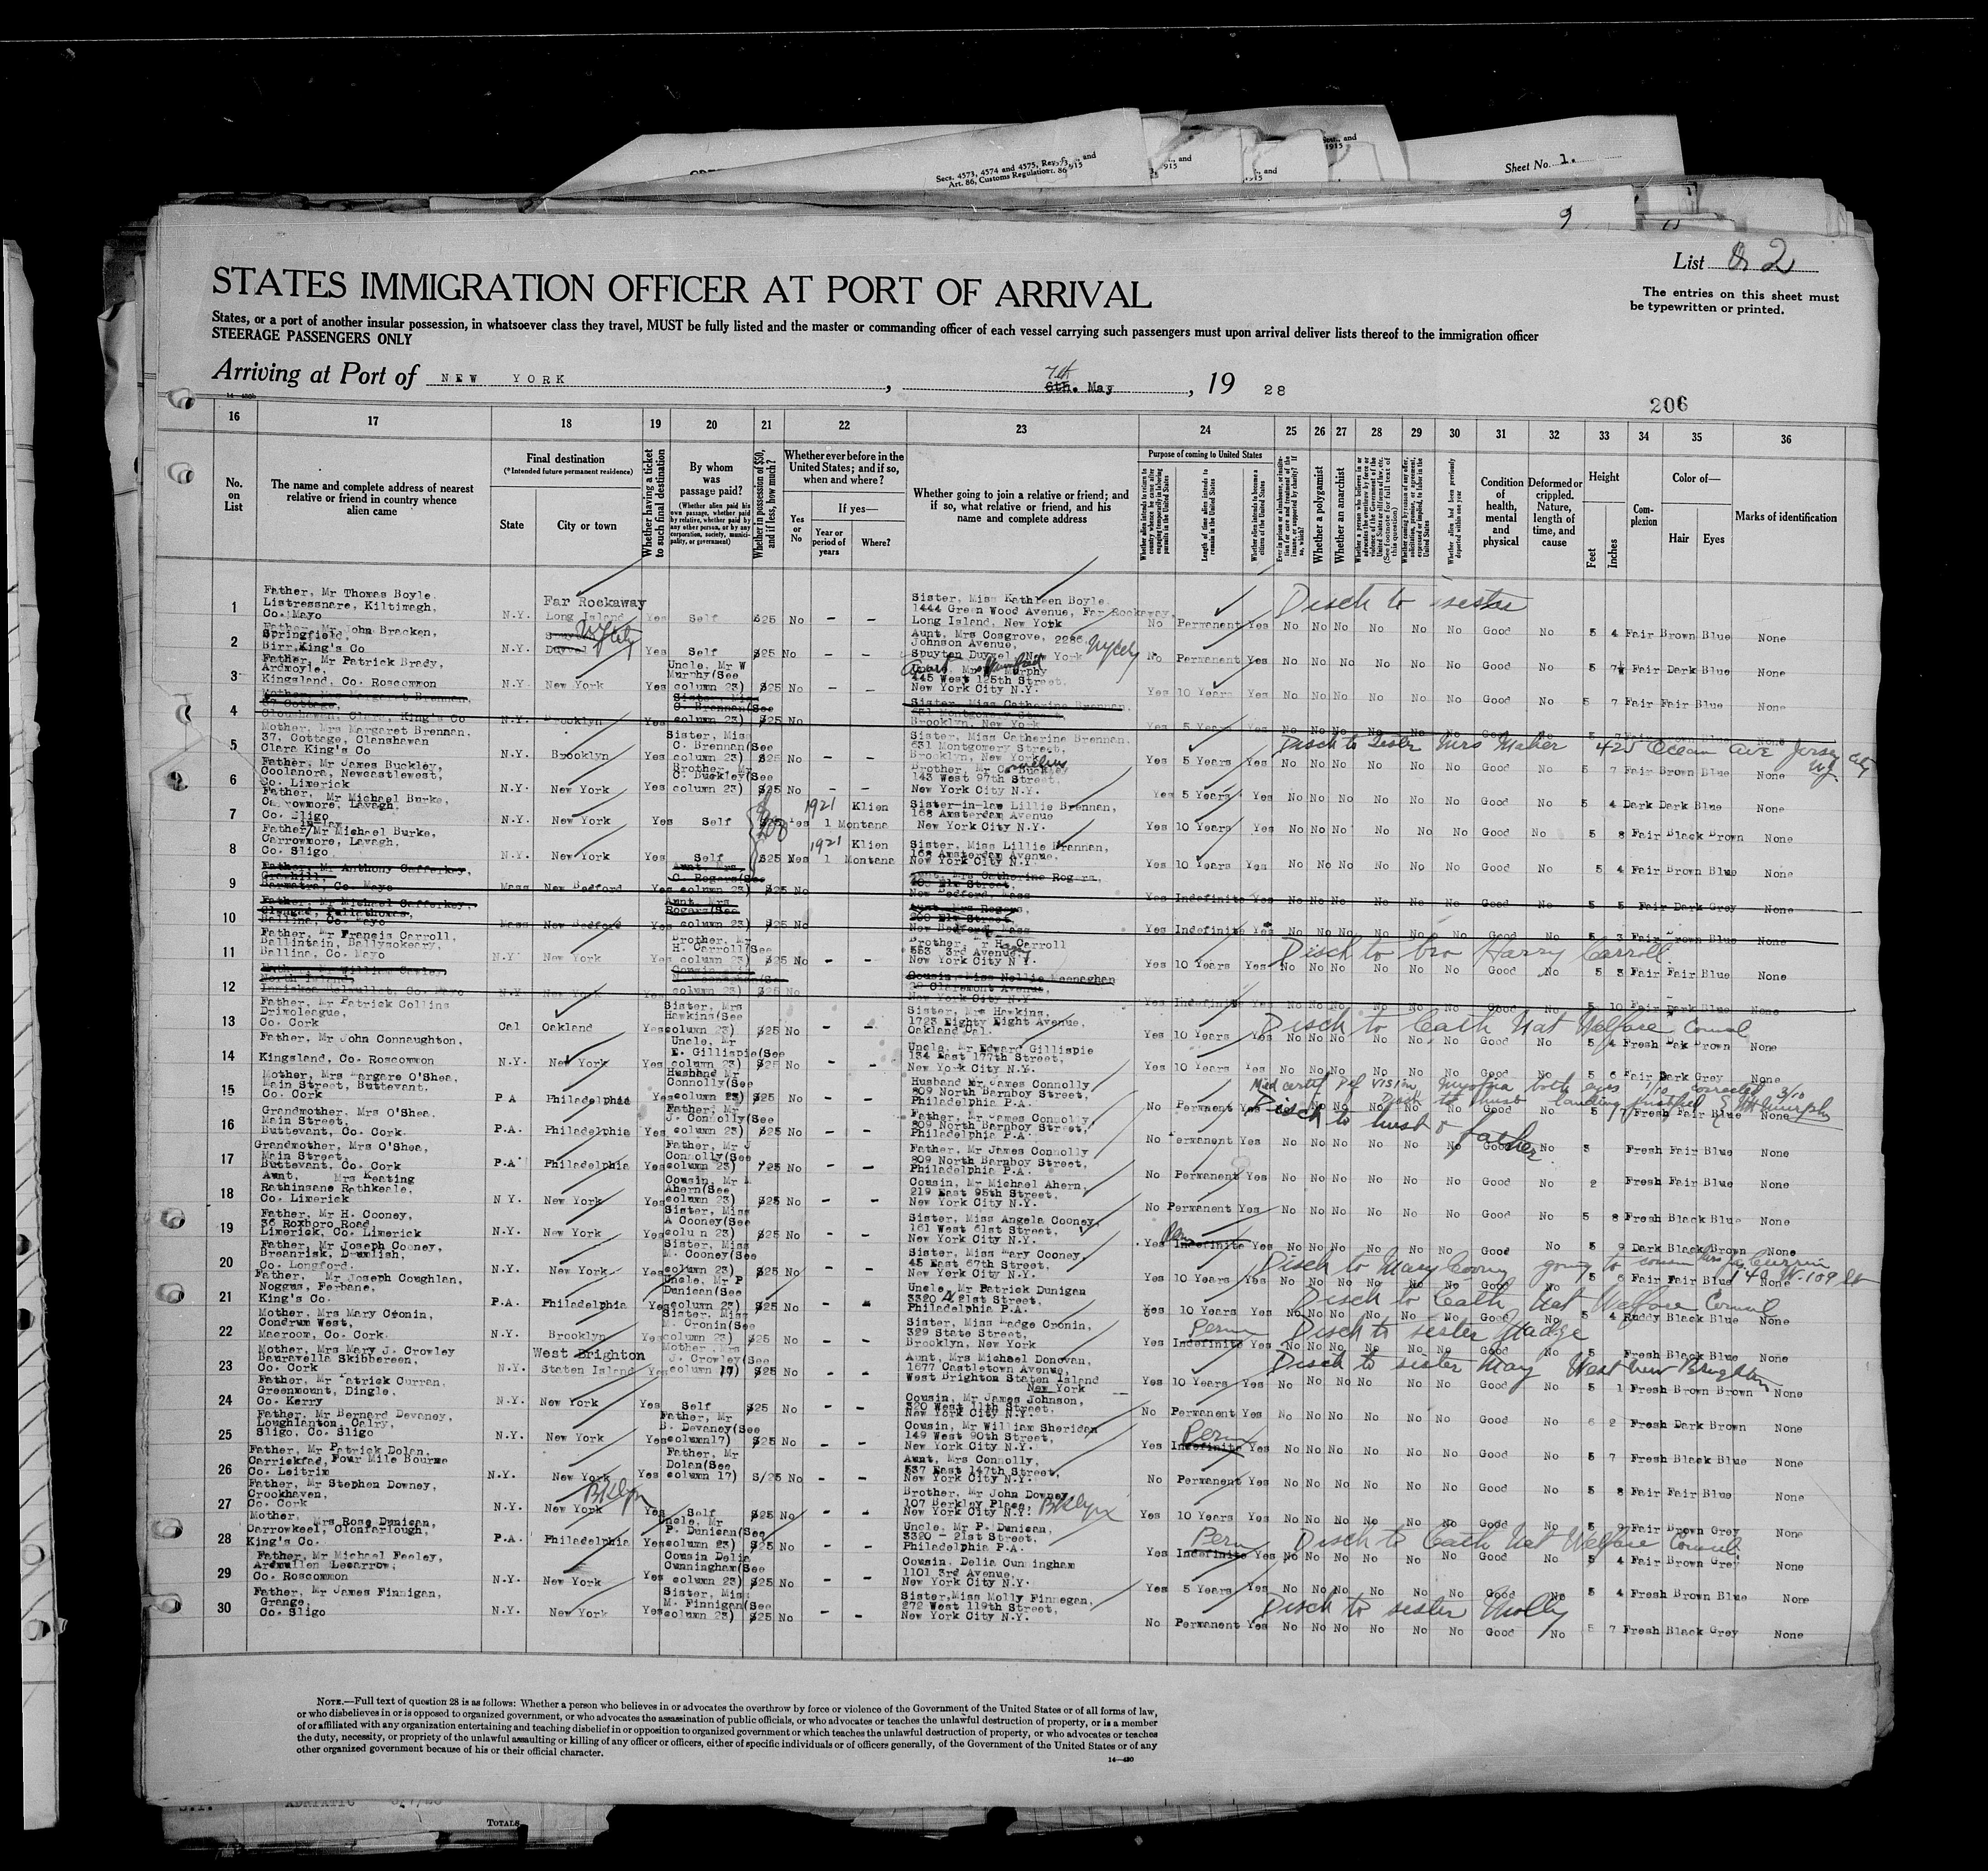 Secs. 4573, 4574 and 4575, Rev.
Art. 86, Customs Regulation
Sheet No. 1.
9
List 2
The entries on this sheet must
be typewritten or printed.
STATES IMMIGRATION OFFICER AT PORT OF ARRIVAL
States, or a port of another insular possession, in whatsoever class they travel, MUST be fully listed and the master or commanding officer of each vessel carrying such passengers must upon arrival deliver lists thereof to the immigration officer
STEERAGE PASSENGERS ONLY
Arriving at Port of NEW YORK, 7th 6th. May, 19 28
206
16 17 18 19 20 21 22 23 24 25 26 27 28 29 30 31 32 33 34 35 36
No. on List
The name and complete address of nearest relative or friend in country whence alien came
Final destination
(*Intended future permanent residence)
State
City or town
Whether having a ticket to such final destination
By whom was passage paid?
(Whether alien paid his own passage, whether paid by relative, whether paid by any other person, or by any corporation, society, municipality, or government)
Whether in possession of $50, and if less, how much?
Whether ever before in the United States; and if so, when and where?
Yes or No
If yes—
Year or period of years
Where?
Whether going to join a relative or friend; and if so, what relative or friend, and his name and complete address
Purpose of coming to United States
Length of time alien intends to remain in the United States
Whether alien intends to become a citizen of the United States
Whether a polygamist
Whether an anarchist
Condition of health, mental and physical
Deformed or crippled. Nature, length of time, and cause
Height
Feet
Inches
Complexion
Color of—
Hair
Eyes
Marks of identification
1 Father, Mr Thomas Boyle, Listressnare, Kiltimagh, Co. Mayo N.Y. Far Rockaway Long Island Yes Self $25 No - - Sister, Miss Kathleen Boyle, 1444 Green Wood Avenue, Far Rockaway, Long Island, New York No Permanent Yes No No No No No No Good No 5 4 Fair Brown Blue None
Disch to sister
2 Father, Mr John Bracken, Springfield, Birr, King's Co N.Y. Duyvel NYCity Yes Self $25 No - - Aunt, Mrs Cosgrove, 2286 Johnson Avenue, Spuyten Duyvel, New York NYCity No Permanent Yes No No No No No No Good No 5 7½ Fair Dark Blue None
3 Father, Mr Patrick Brady, Ardmoyle, Kingsland, Co. Roscommon N.Y. New York Yes Uncle, Mr W Murphy (See column 23) $25 No - - Murphy 445 West 125th Street, New York City N.Y. Yes 10 Years Yes No No No No No No Good No 5 7 Fair Fair Blue None
4 Mother, Mrs Margaret Brennan, 37 Cottage, Clara, King's Co N.Y. Brooklyn Yes Sister Miss C. Brennan (See column 23) $25 No Sister, Miss Catherine Brennan, 631 Montgomery Street, Brooklyn, New York Yes 5 Years Yes No No No No No No Good No 5 7 Fair Brown Blue None
5 Mother, Mrs Margaret Brennan, 37, Cottage, Clanshawan Clara King's Co N.Y. Brooklyn Yes Sister, Miss C. Brennan (See column 23) $25 No - - Sister, Miss Catherine Brennan, 631 Montgomery Street, Brooklyn, New York Yes 5 Years Yes No No No No No No Good No 5 7 Fair Brown Blue None
Disch to Sister Mrs Maher 425 Ocean Ave Jersey City NJ
6 Father, Mr James Buckley, Coolanora, Newcastlewest, Co. Limerick N.Y. New York Yes Brother, Mr C. Buckley (See column 23) $25 No - - Brother, Mr Cornelius Buckley 143 West 97th Street, New York City N.Y. Yes 5 Years Yes No No No No No No Good No 5 4 Dark Dark Blue None
7 Father, Mr Michael Burke, Carrowmore, Lavagh, Co. Sligo N.Y. New York Yes Self $25 Yes 1921 1 Klien Montana Sister-in-law Lillie Brennan, 168 Amsterdam Avenue New York City N.Y. Yes 10 Years Yes No No No No No No Good No 5 8 Fair Black Brown None
8 Father in law Mr Michael Burke, Carrowmore, Lavagh, Co. Sligo N.Y. New York Yes Self $25 Yes 1921 1 Klien Montana Sister, Miss Lillie Brannan, 168 Amsterdam Avenue, New York City N.Y. Yes 10 Years Yes No No No No No No Good No 5 4 Fair Brown Blue None
9 Father, Mr Anthony Cafferkey, Co. Mayo Mass New Bedford Yes Aunt, Mrs. C. Rogers (See column 23) $25 No Aunt, Mrs Catherine Rogers, Elm Street, New Bedford, Mass Yes Indefinite Yes No No No No No No Good No 5 5 Fair Dark Grey None
10 Father, Mr Michael Cafferkey, Ballina, Co. Mayo Mass New Bedford Yes Aunt, Mrs Rogers (See column 23) $25 No Aunt Mrs Rogers, Elm Street, New Bedford, Mass Yes Indefinite Yes No No No No No No Good No 5 3 Fair Brown Blue None
11 Father, Mr Francis Carroll, Ballintain, Ballysokeary, Ballina, Co. Mayo N.Y. New York Yes Brother, Mr H. Carroll (See column 23) $25 No - - Brother, Mr Carroll 553 3rd Avenue, New York City N.Y. Yes 10 Years Yes No No No No No No Good No 5 3 Fair Fair Blue None
Disch to bro Harry Carroll
12 Father, Mr William Cawley, North Island, Co. Mayo N.Y. New York Yes column 23) $25 No Cousin, Miss Nellie Meenaghan Claremont Avenue, New York City N.Y. Yes Indefinite Yes No No No No No No Good No 5 10 Fair Dark Blue None
13 Father, Mr Patrick Collins Drimoleague, Co. Cork Cal Oakland Yes Sister, Mrs Hawkins (See column 23) $25 No - - Sister, Mrs Hawkins, 1723 Eighty Eight Avenue, Oakland Cal. Yes 10 Years Yes No No No No No No Good No 5 4 Fresh Dak Brown None
Disch to Cath Nat Welfare Council
14 Father, Mr John Connaughton, Kingsland, Co. Roscommon N.Y. New York Yes Uncle, Mr E. Gillispie (See column 23) $25 No - - Uncle, Mr Edward Gillispie 134 East 177th Street, New York City N.Y. Yes 10 Years Yes No No No No No No Good No 5 6 Fair Dark Grey None
15 Mother, Mrs Margare O'Shea, Main Street, Buttevant. Co. Cork P A Philadelphia Yes Husband Mr Connolly (See column 23) $25 No - - Husband Mr James Connolly 809 North Barnboy Street, Philadelphia P.A. No Permanent Yes No No No No No No Good No 5 7 Fresh Fair Blue None
Med certif Def vision, myopia both eyes 1/10 corrected 3/10
Disch to husb landing justified Murphy
16 Grandmother, Mrs O'Shea, Main Street, Buttevant, Co. Cork P.A. Philadelphia Yes Father, Mr J. Connolly (See column 23) $25 No - - Father, Mr James Connolly 809 North Barnboy Street, Philadelphia P.A. No Permanent Yes No No No No No No Good No 3 Fresh Fair Blue None
Disch to husb & father
17 Grandmother, Mrs O'Shea, Main Street, Buttevant, Co. Cork P.A. Philadelphia Yes Father, Mr J Connolly (See column 23) $25 No - - Father, Mr James Connolly 809 North Barnboy Street, Philadelphia P.A. No Permanent Yes No No No No No No Good No 2 Fresh Fair Blue None
18 Aunt, Mrs Keating Rathinsane Rathkeale, Co. Limerick N Y. New York Yes Cousin, Mr M Ahern (See column 23) $25 No - - Cousin, Mr Michael Ahern, 219 East 95th Street, New York City N.Y. No Permanent Yes No No No No No No Good No 5 8 Fresh Black Blue None
19 Father, Mr H. Cooney, 36 Roxboro Road, Limerick, Co. Limerick N.Y. New York Yes Sister, Miss A Cooney (See colu n 23) $25 No - - Sister, Miss Angela Cooney, 161 West 61st Street, New York City N.Y. Yes Perm Indefinite Yes No No No No No No Good No 5 9 Dark Black Brown None
20 Father, Mr Joseph Cooney, Breanrisk, Drumlish, Co. Longford. N.Y. New York Yes Sister, Miss M. Cooney (See column 23) $25 No - - Sister, Miss Mary Cooney, 45 East 67th Street, New York City N.Y. Yes 10 Years Yes No No No No No No Good No 5 6 Fair Fair Blue None
Disch to Mary Cooney going to cousin Mrs Jas Currin 148 W. 109 St
21 Father, Mr Joseph Coughlan, Noggus, Ferbane, King's Co. P.A. Philadelphia Yes Uncle, Mr P Dunican (See column 23) $25 No - - Uncle, Mr Patrick Dunigan 3320 N 21st Street, Philadelphia P.A. Yes 10 Years Yes No No No No No No Good No 5 4 Ruddy Black Blue None
Disch to Cath Nat Welfare Council
22 Mother, Mrs Mary Cronin, Condrum West, Macroom, Co. Cork. N.Y. Brooklyn Yes Sister, Miss M. Cronin (See column 23) $25 No - - Sister, Miss Madge Cronin, 329 State Street, Brooklyn, New York Yes Perm Indefinite Yes No No No No No No Good No 5 Fresh Black Blue None
Disch to sister Madge
23 Mother, Mrs Mary J. Crowley Bauravella Skibbereen, Co. Cork N.Y. West Brighton Staten Island Yes Mother, Mrs J. Crowley (See column 17) $25 No - - Aunt, Mrs Michael Donovan, 1677 Castletown Avenue, West Brighton Staten Island New York Yes 10 Years Yes No No No No No No Good No 5 1 Fresh Brown Brown None
Disch to sister May West New Brighton
24 Father, Mr Patrick Curran, Greenmount, Dingle, Co. Kerry N.Y. New York Yes Self $25 No - - Cousin, Mr James Johnson, 320 West 11th Street, New York City N.Y. No Permanent Yes No No No No No No Good No 6 2 Fresh Dark Brown None
25 Father, Mr Bernard Devaney, Loughlanton, Calry, Sligo, Co. Sligo N.Y. New York Yes Father, Mr B. Devaney (See column 17) $25 No - - Cousin, Mr William Sheridan 149 West 90th Street, New York City N.Y. Yes Perm Indefinite Yes No No No No No No Good No 5 7 Fresh Black Blue None
26 Father, Mr Patrick Dolan, Carrickfad, Four Mile Bourne Co. Leitrim N.Y. New York Yes Father, Mr Dolan (See column 17) $/25 No - - Aunt, Mrs Connolly, 537 East 147th Street, New York City N.Y. No Permanent Yes No No No No No No Good No 5 8 Fair Fair Blue None
27 Father, Mr Stephen Downey, Crookhaven, Co. Cork N.Y. New York Bklyn Yes Self $25 No - - Brother, Mr John Downey, 107 Berkley Place, New York City N.Y. Bklyn Yes 10 Years Yes No No No No No No Good No 5 9 Fair Brown Grey None
28 Mother, Mrs Rose Dunican, Carrowkeel, Clonfarlough, King's Co. P.A. Philadelphia Yes Uncle, Mr P. Dunican (See column 23) $25 No - - Uncle, Mr P. Dunican, 3320 - 21st Street, Philadelphia P.A. Yes Perm Indefinite Yes No No No No No No Good No 5 4 Fair Brown Grey None
Disch to Cath Nat Welfare Council
29 Father, Mr Michael Feeley, Ardmullen Lecarrow, Co. Roscommon N.Y. New York Yes Cousin Delia Cunningham (See column 23) $25 No - - Cousin, Delia Cunningham 1101 3rd Avenue, New York City N.Y. Yes 5 Years Yes No No No No No No Good No 5 4 Fresh Brown Blue None
30 Father, Mr James Finnigan, Grange, Co. Sligo N.Y. New York Yes Sister, Miss M. Finnigan (See column 23) $25 No - - Sister, Miss Molly Finnegan, 272 West 119th Street, New York City N.Y. No Permanent Yes No No No No No No Good No 5 7 Fresh Black Grey None
Disch to sister Molly
NOTE.—Full text of question 28 is as follows: Whether a person who believes in or advocates the overthrow by force or violence of the Government of the United States or of all forms of law,
or who disbelieves in or is opposed to organized government, or who advocates the assassination of public officials, or who advocates or teaches the unlawful destruction of property, or is a member
of or affiliated with any organization entertaining and teaching disbelief in or opposition to organized government or which teaches the unlawful destruction of property, or who advocates or teaches
the duty, necessity, or propriety of the unlawful assaulting or killing of any officer or officers, either of specific individuals or of officers generally, of the Government of the United States or of any
other organized government because of his or their official character.
14—430
ADRIATIC
TOTALS